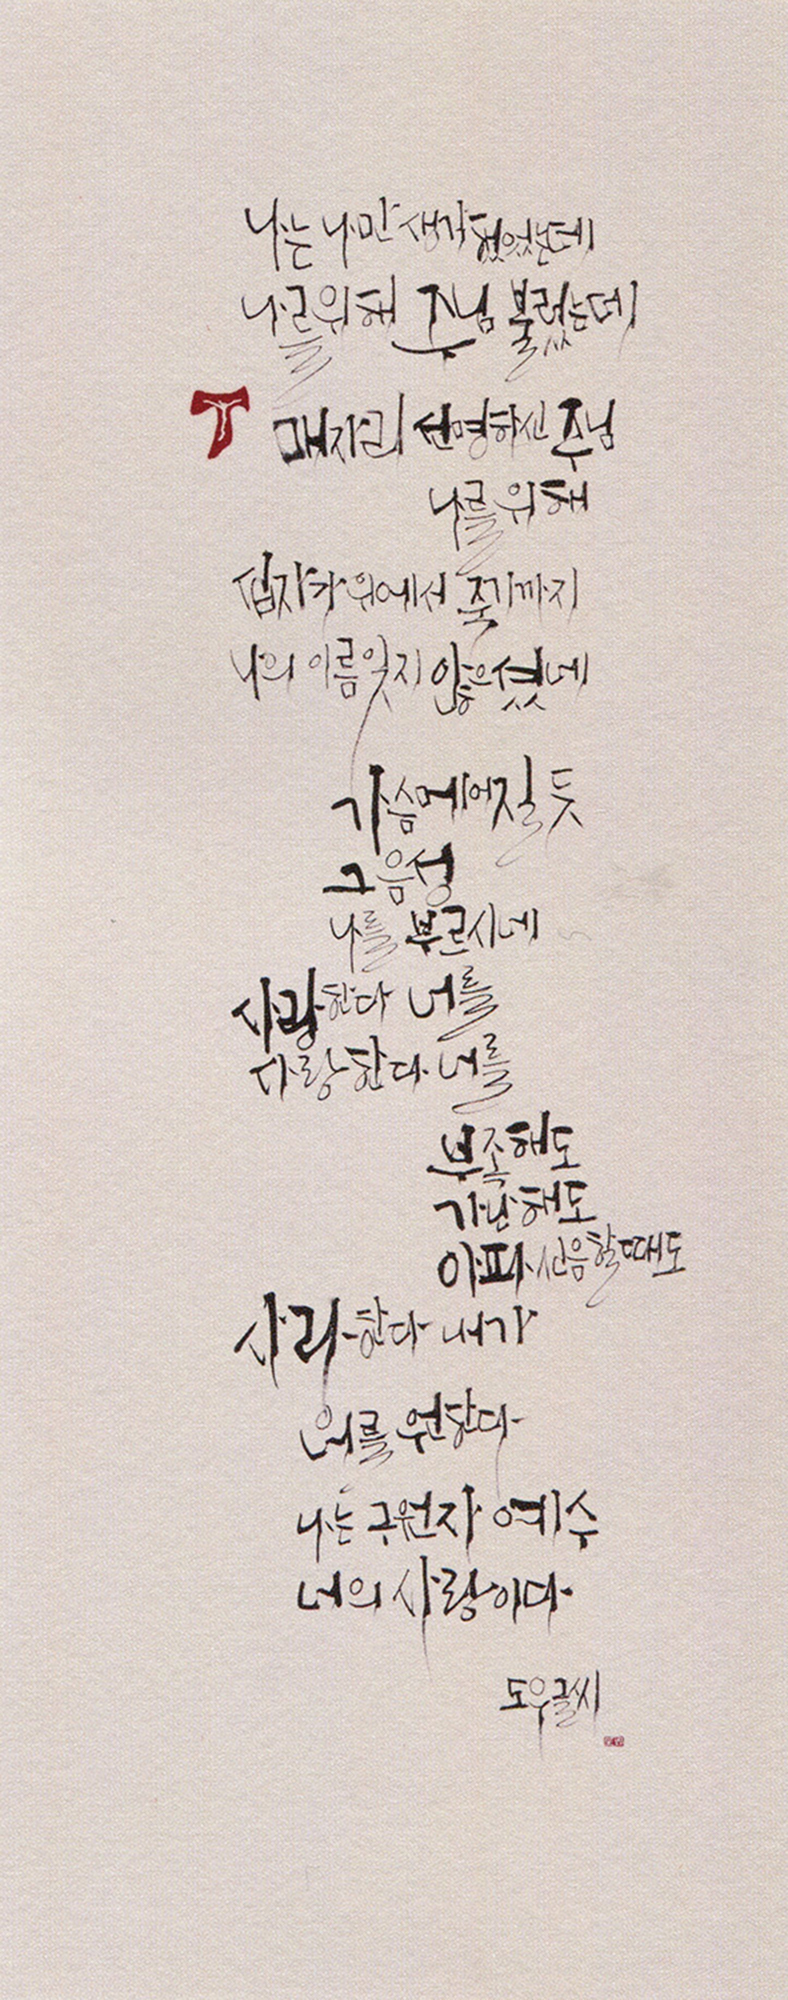 나는 나만 생각했었는데
나를위해 주님 불렀는데
매자리 선명하신 주님
나를위해
십자가 위에서 죽기까지
나의 이름 잊지 않으셨네
가슴 메어질 듯
그 음성
나를 부르시네
사랑한다 너를
사랑한다 너를
부족해도
가난해도
아파 신음할때도
사랑한다 내가
너를 원한다
나는 구원자 예수
너의 사랑이다
도우글씨